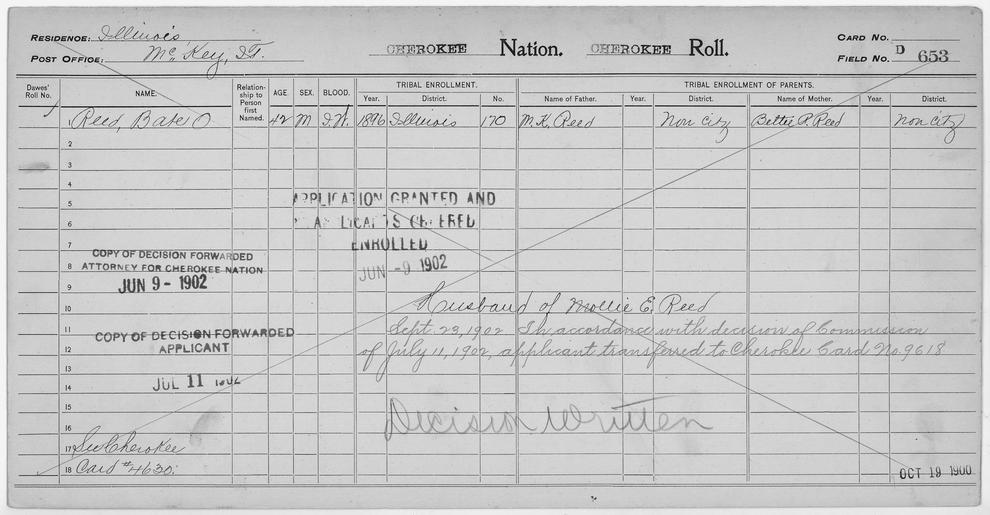 RESIDENCE: Illinois,
POST OFFICE: McKey, I.T.
CHEROKEE Nation. CHEROKEE Roll.
CARD NO.
FIELD NO. D 653
Dawes' Roll No. NAME. Relation-ship to Person first Named. AGE. SEX. BLOOD. TRIBAL ENROLLMENT. TRIBAL ENROLLMENT OF PARENTS.
Year. District. No. Name of Father. Year. District. Name of Mother. Year. District.
1 Reed, Bate O. 42 M I.W. 1896 Illinois 170 M.K. Reed Non Citz Bettie P. Reed Non Citz
2
3
4
APPLICATION GRANTED AND
5
APPLICANTS ORDERED
6
ENROLLED
7
COPY OF DECISION FORWARDED
8 ATTORNEY FOR CHEROKEE NATION
JUN -9 1902
JUN 9 - 1902
9
10 Husband of Mollie E. Reed
11 Sept. 23, 1902 In accordance with decision of Commission
COPY OF DECISION FORWARDED
12 of July 11, 1902, applicant transferred to Cherokee Card No. 9618
APPLICANT
13
14 JUL 11 1902
15
Decision Written
16
17 See Cherokee
18 Card #4630.
OCT 19 1900